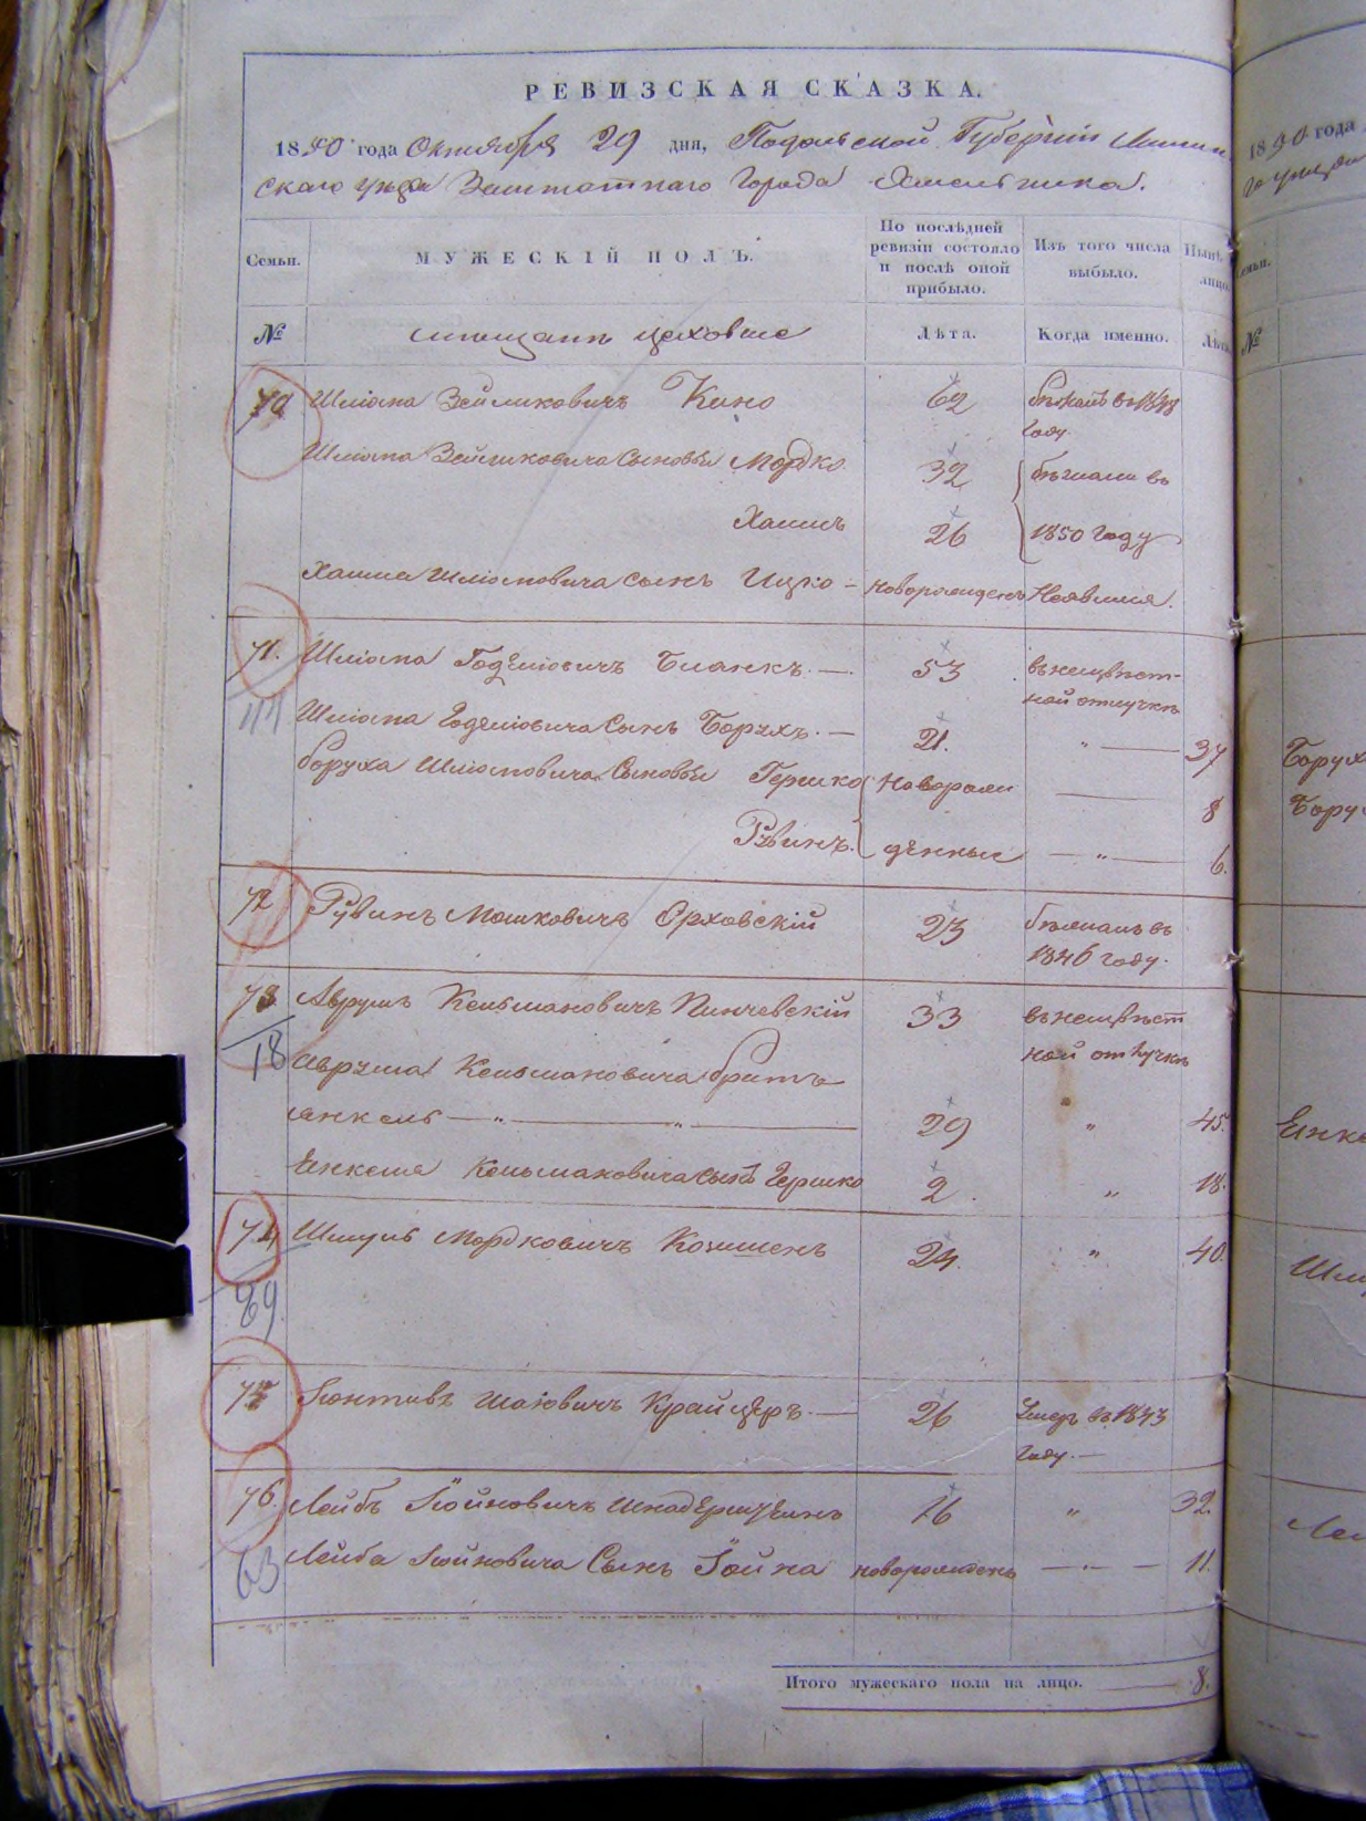 РЕВИЗСКАЯ СКАЗКА.
1850 года Октября 29 дня, Подольской Губерніи Литин
скаго уѣзда Заштатнаго Города Хмельника.
Семьи. МУЖЕСКІЙ ПОЛЪ. По послѣдней ревизіи состояло и послѣ оной прибыло. Изъ того числа выбыло.
№ мѣщанъ цеховые Лѣта. Когда именно.
70 Шліома Зейликовичъ Кино 62 бѣжалъ въ 1848
году.
Шліома Зейликовича Сыновья Мордко 32 бѣжали въ
Хаимъ 26 1850 году
Хаима Шліомовича сынъ Ицко - новорожденъ Неявился.
71. Шліома Годелiовичъ Бланкъ. — 53 въ неизвѣст-
ной отлучкѣ
44 Шліома Годелiовича Сынъ Борухъ. — 21. " — 37
Боруха Шліомовича Сыновья Гершко новорож — 8
Рувинъ. денные — " — 6.
72 Рувинъ Мошковичъ Орховскій 23 бѣжалъ въ
1846 году.
73 Аврумъ Кельмановичъ Пинчевскій 33 въ неизвѣст
18 ной отлучкѣ
Аврума Кельмановича братъ
Янкель — " — " — 29 " 45.
Янкеля Кельмановича сынъ Гершко 2. " 18.
74 Шмуль Мордковичъ 24. " 40.
89.
75 Іонтивъ Шаіовичъ Крайцеръ. — 26 Умеръ въ 1843
году. —
76. Лейбъ Іойновичъ 16 " 32.
63 Лейба Іойновича Сынъ Іойна новорожденъ — " — 11.
Итого мужескаго пола на лицо. — 8.
1850 года
Семьи.
№